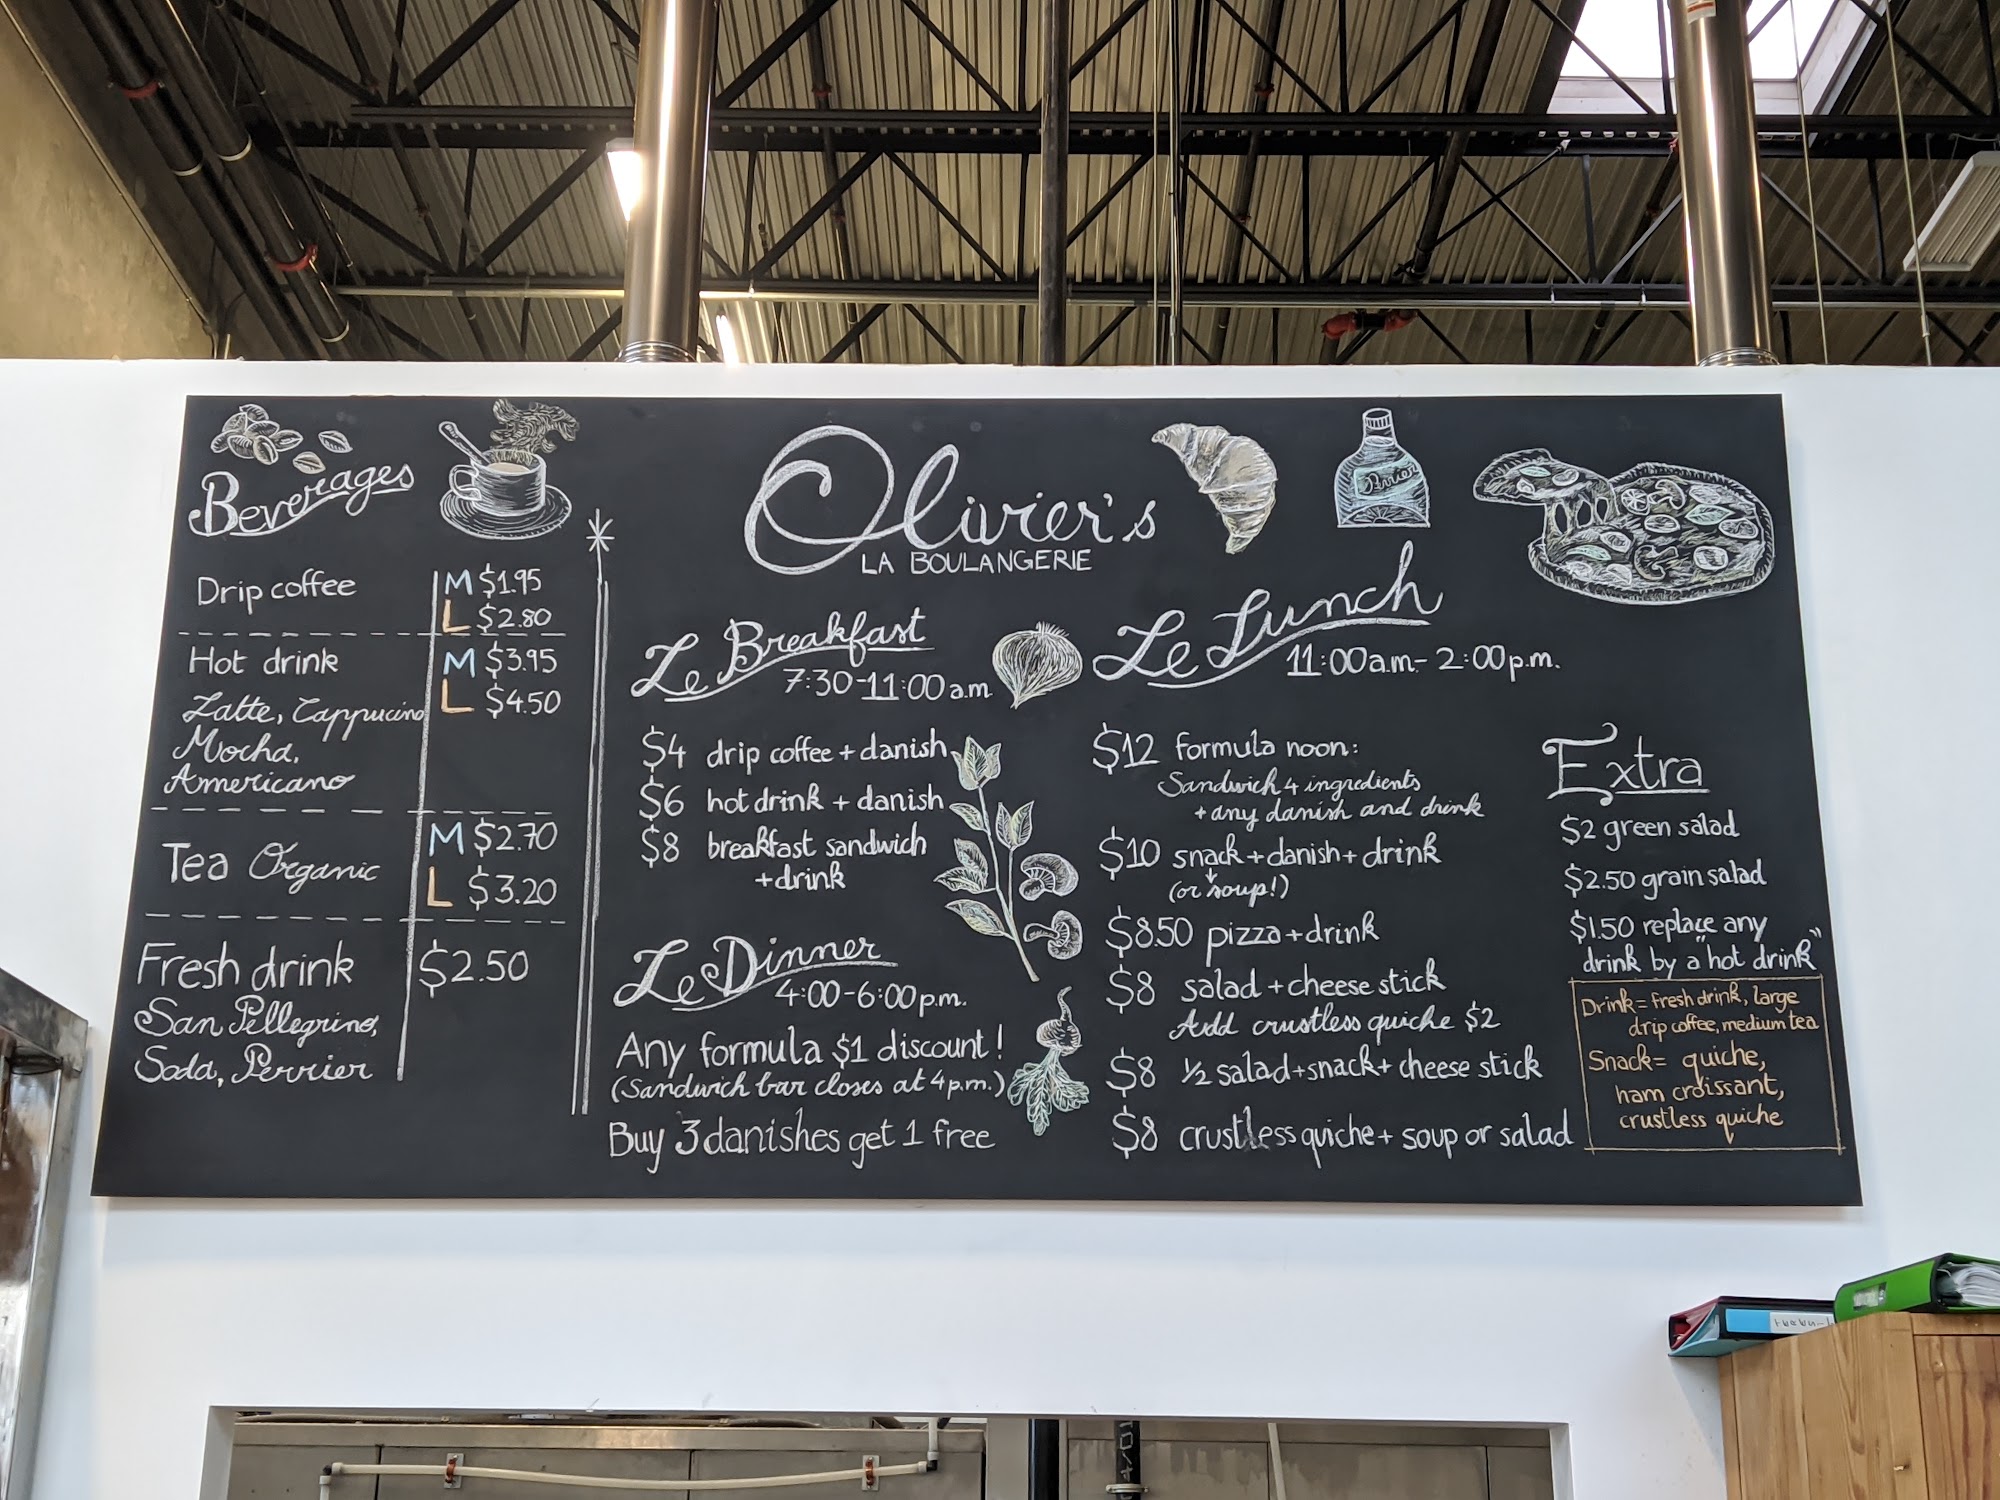 Beverages
Drip coffee M $1.95
L $2.80
Hot drink M $3.95
L $4.50
Latte, Cappucino
Mocha,
Americano
Tea Organic M $2.70
L $3.20
Fresh drink $2.50
San Pellegrino,
Soda, Perrier
Olivier's
LA BOULANGERIE
Perrier
Le Breakfast
7:30-11:00 a.m.
$4 drip coffee + danish
$6 hot drink + danish
$8 breakfast sandwich
+drink
Le Dinner
4:00-6:00p.m.
Any formula $1 discount!
(Sandwich bar closes at 4p.m.)
Buy 3 danishes get 1 free
Le Lunch
11:00a.m.- 2:00p.m.
$12 formula noon:
Sandwich 4 ingredients
+ any danish and drink
$10 snack+danish+drink
(or soup!)
$8.50 pizza+drink
$8 salad +cheese stick
Add crustless quiche $2
$8 1/2 salad+snack+ cheese stick
$8 crustless quiche+ soup or salad
Extra
$2 green salad
$2.50 grain salad
$1.50 replace any
drink by a "hot drink"
Drink= fresh drink, large
drip coffee, medium tea
Snack= quiche,
ham croissant,
crustless quiche